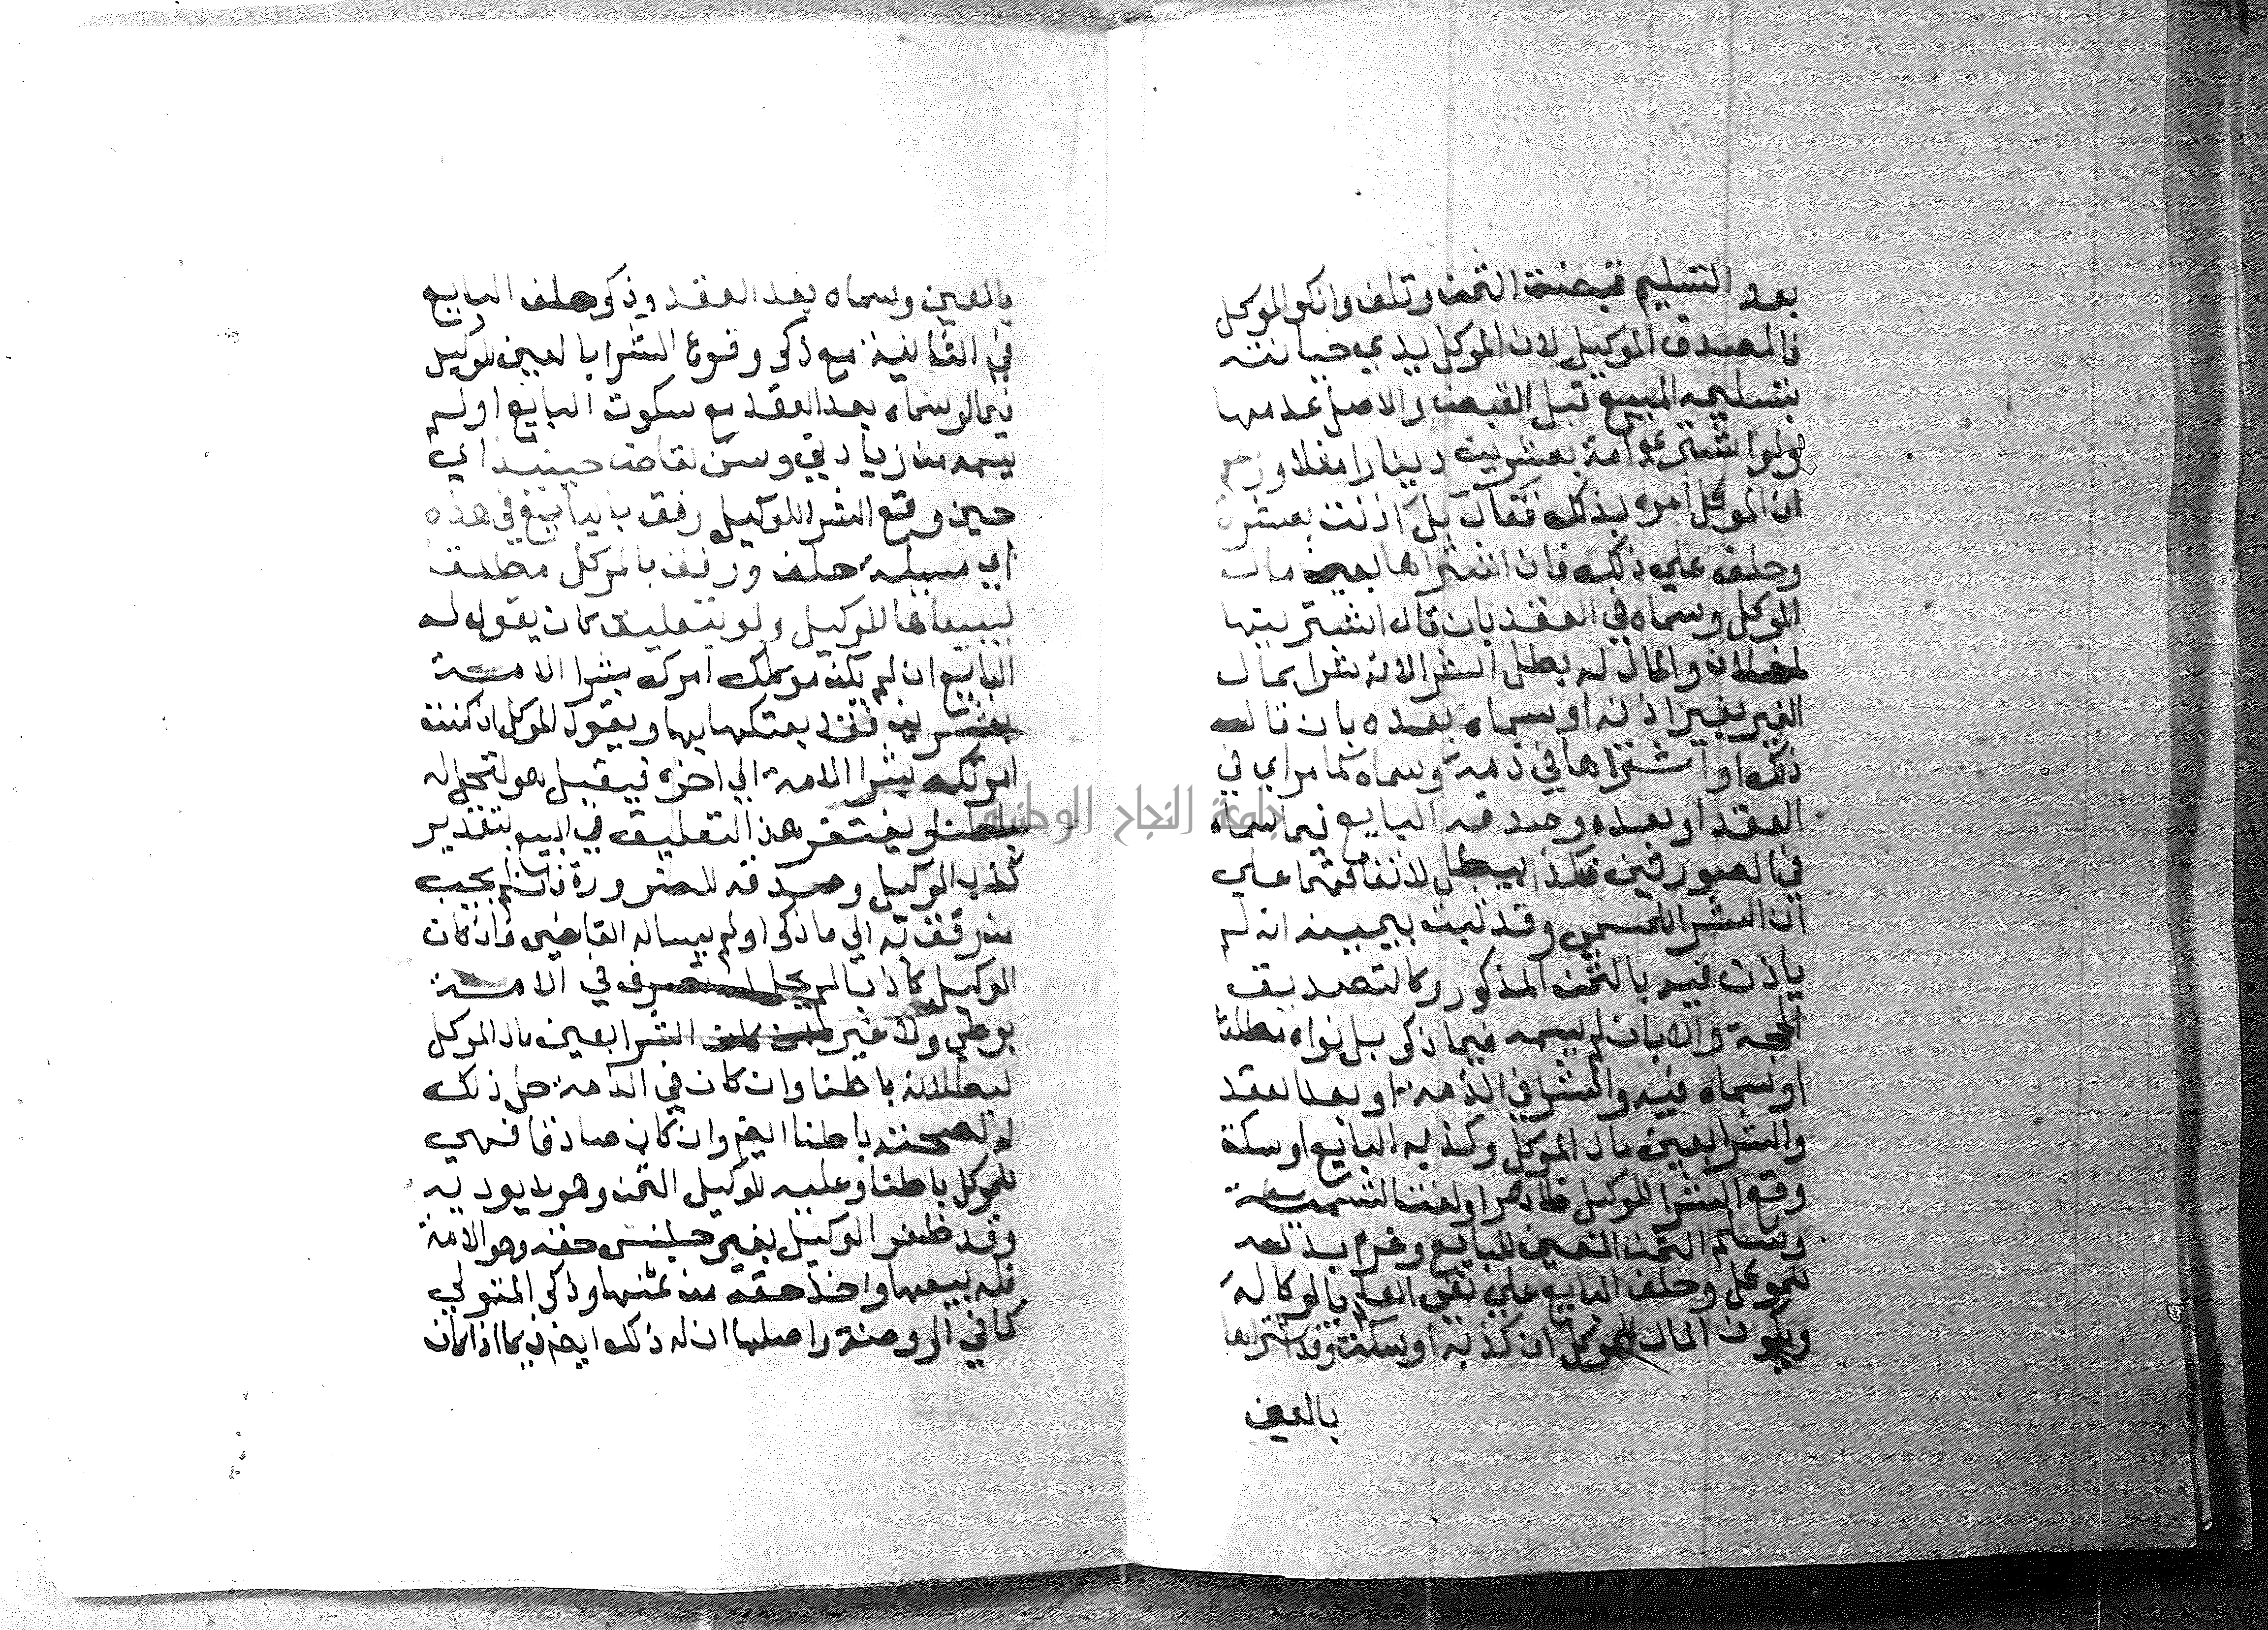 بعد التسليم قبضت الثمن وتلف وانكر الموكل
فالمصدق الوكيل لان الموكل يدعي خيانته
بتسليمه المبيع قبل القبض والاصل عدمها
ولو اشتري امة بعشرين دينارا مثلا وزعم
ان الموكل امره بذلك فقال بل اذنت بعشرة
وحلف علي ذلك فان اشتراها بعين مال
الموكل وسماه في العقد بان قال اشتريتها
لفلان والمال له بطل الشرا لانه شرا بمال
الغير بغير اذنه او سماه بعده بان قال له
ذلك او اشتراها في ذمة وسماه كما مر اي في
العقد او بعده وصدقه البايع فيما سماه
في الصورتين فكذا يبطل لاتفاقهما علي
ان الشرا للمسمي وقد ثبت بيمينه انه لم
ياذن فيه بالثمن المذكور وكالتصديق
الحجة والا بان لم يسمه فيما ذكر بل نواه مطلقا
او سماه فيه والشرا في الذمة او بعد العقد
والشرا بعين مال الموكل وكذبه البايع او سكت
وقع الشرا للوكيل ظاهرا ولغت التسمية
وتسلم الثمن المعين للبايع وغرم بدله
للموكل وحلف البايع علي نفي العلم بالوكالة
وبكون المال للموكل ان كذبه او سكت وقد اشتراها
بالعين
بالعين وسماه بعد العقد وذكر حلف البايع
في الثانية مع ذكر وقوع الشرا بالعين للوكيل
فيما لو سماه بعد العقد مع سكوت البايع او لم
يسمه من زيادتي وسن لقاض حينئذ اي
حين وقع الشرا للوكيل رفق بالبايع في هذه
اي مسيلة حلف ورفق بالموكل مطلقا
لبيعاها للوكيل ولو بتعليق كان يقول له
البايع ان لم يكن موكلك امرك بشرا الامة
بعشرين فقد بعتكها بها ويقول الموكل ان كنت
امرتك بشرا الامة الي اخره فيقبل هو لتحل له
باطنا ويغتفر هذا التعليق في البيع بتقدير
كذب الوكيل وصدقه للضرورة فان لم يجب
من رفق به الي ما ذكر او لم يساله القاضي فان كان
الوكيل كاذبا لم يحل له التصرف في الامة
بوطي ولا غيره ان كان الشرا بعين مال الموكل
لبطلانه باطنا وان كان في الذمة حل ذلك
له لصحته باطنا ايضا وان كان صادقا فهي
للموكل باطنا وعليه للوكيل الثمن وهو لا يوديه
وقد ظفر الوكيل بغير جنس حقه وهو الامة
فله بيعها واخذ حقه من ثمنها وذكر المتولي
كما في الروضة واصلها ان له ذلك ايضا فيما اذا كان
جامعة النجاح الوطنية